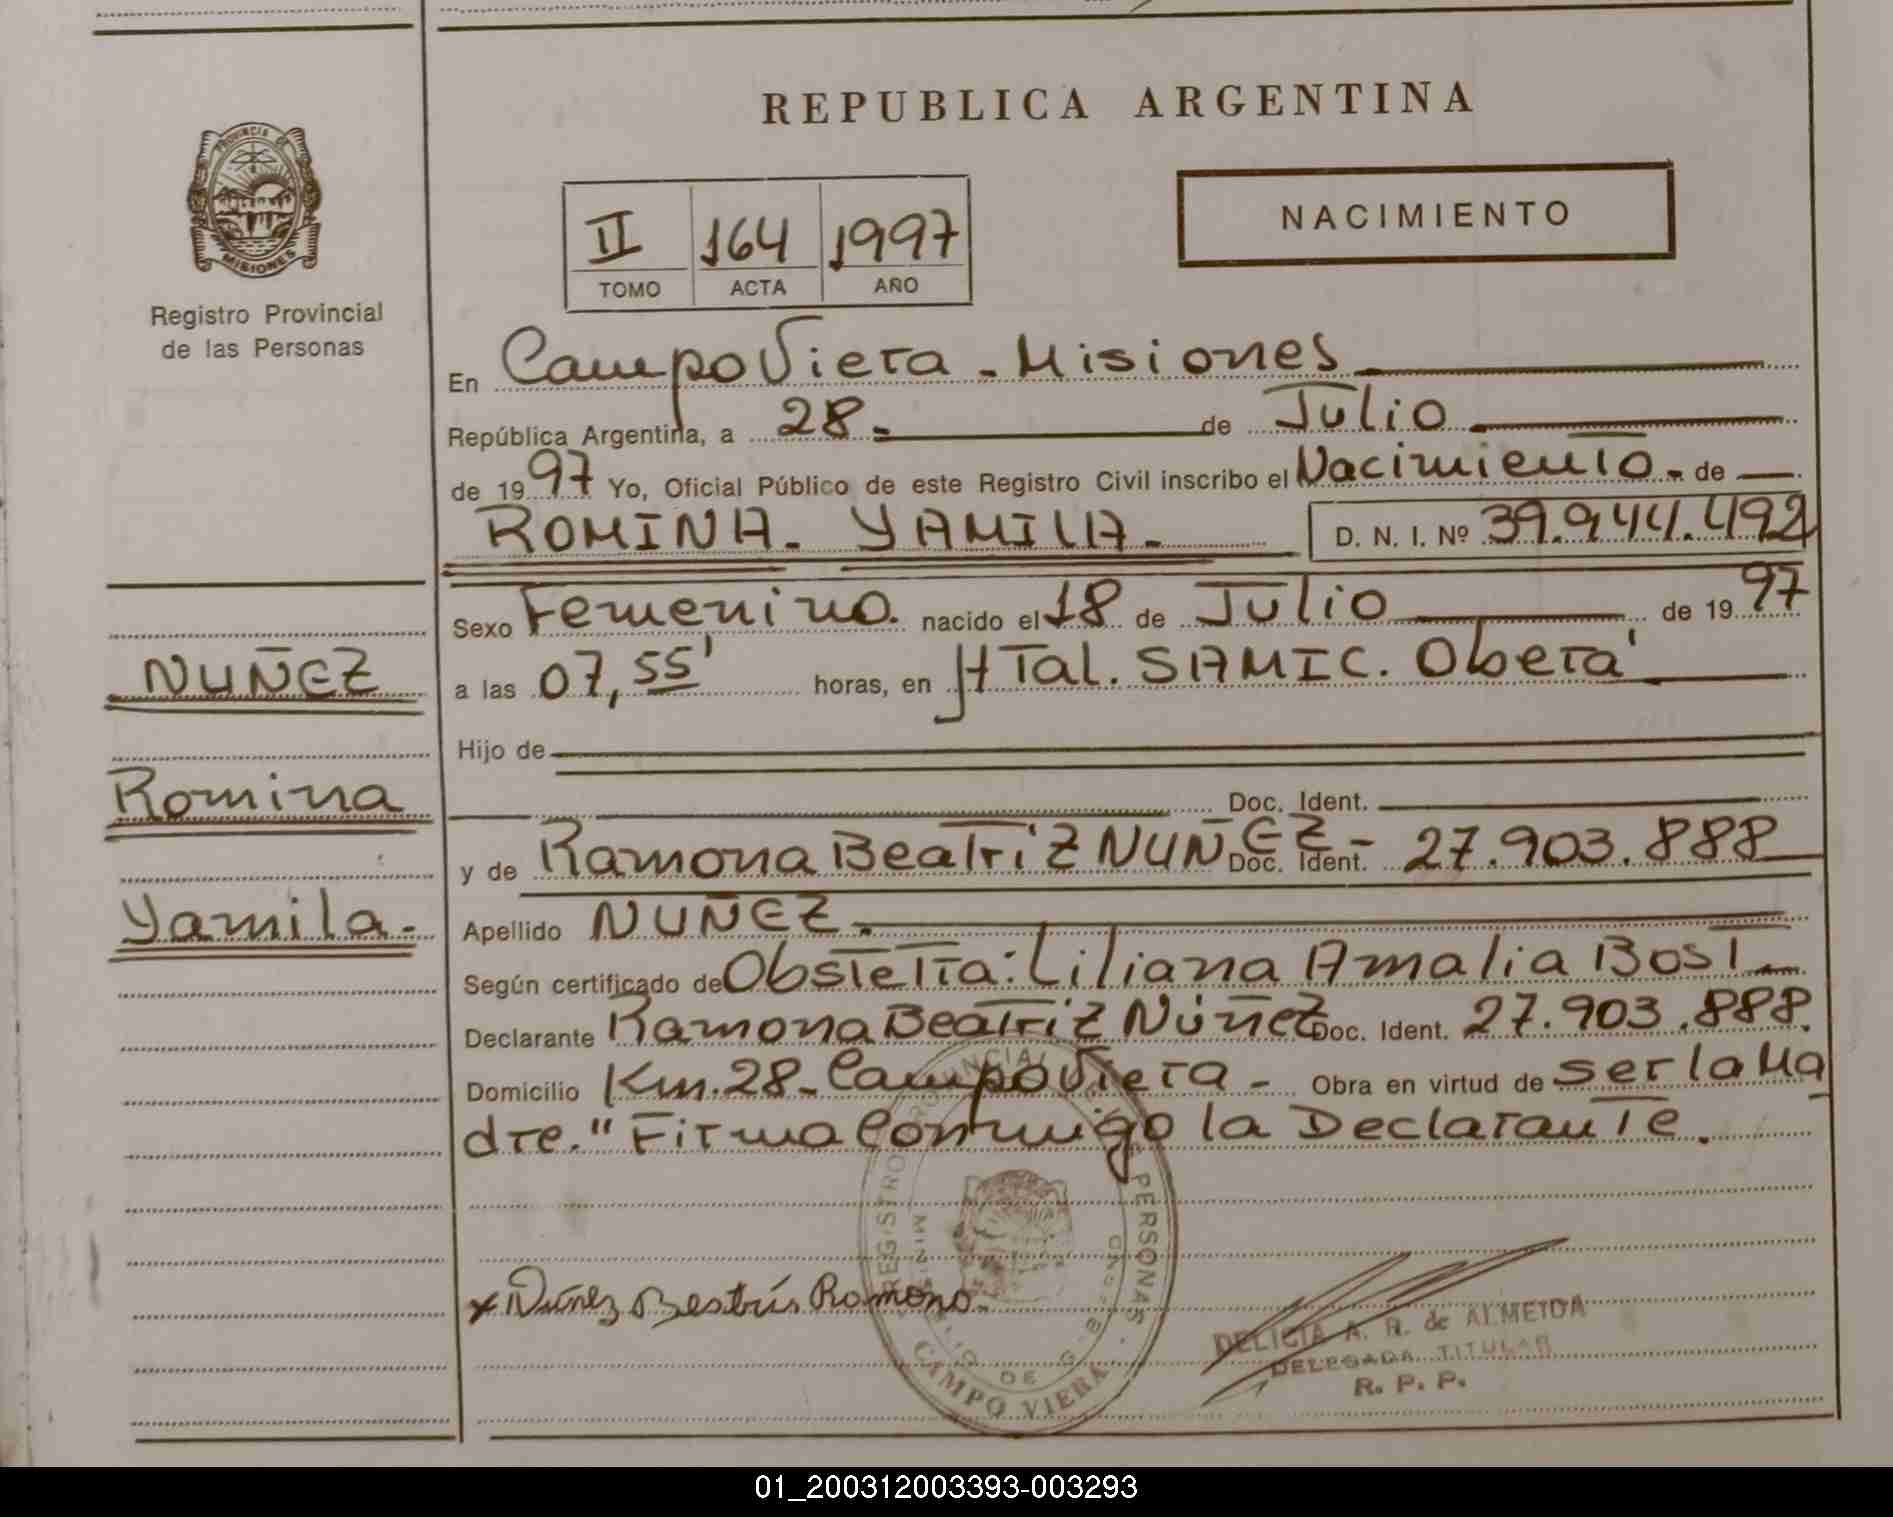 REPUBLICA ARGENTINA
PROVINCIA DE
MISIONES
Registro Provincial
de las Personas
II 164 1997
TOMO ACTA AÑO
NACIMIENTO
En Campo Viera - Misiones
República Argentina, a 28 de Julio
de 1997 Yo, Oficial Público de este Registro Civil inscribo el Nacimiento de
ROMINA - YAMILA - D. N. I. Nº 39.944.492
Sexo Femenino. nacido el 18 de Julio de 1997
NUÑEZ
a las 07,55' horas, en HTal. SAMIC. Oberá
Hijo de
Romina
Doc. Ident.
y de Ramona Beatriz NUÑEZ - Doc. Ident. 27.903.888
Yamila.
Apellido NUÑEZ.
Según certificado de Obstetra: Liliana Amalia Bost
Declarante Ramona Beatriz Núñez Doc. Ident. 27.903.888.
Domicilio Km. 28 - Campo Viera - Obra en virtud de ser la Ma
dre." Firma Conmigo la Declarante.
x Núñez Beatris Ramona
REGISTRO PROVINCIAL PERSONAS
CAMPO VIERA
DELICIA A. R. de ALMEIDA
DELEGADA TITULAR
R. P. P.
01_200312003393-003293